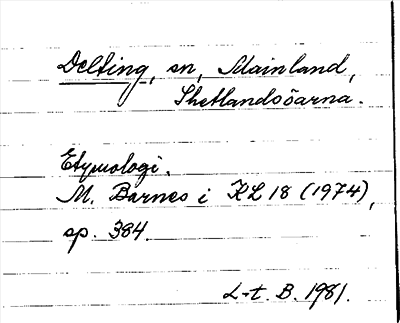 Delting, sn, Mainland,
Shetlandsöarna.
Etymologi.
M. Barnes i KL 18 (1974),
sp. 384.
L-t. B. 1981.